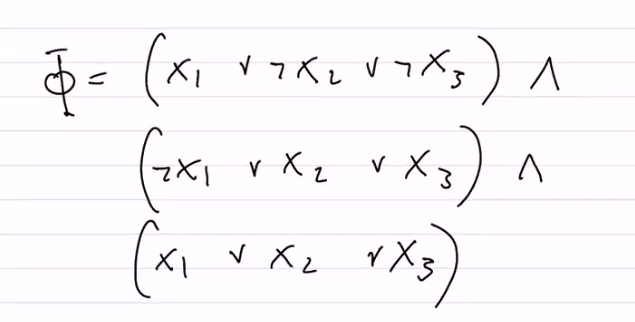 Φ = (x₁ ∨ ¬x₂ ∨ ¬x₃) ∧
(¬x₁ ∨ x₂ ∨ x₃) ∧
(x₁ ∨ x₂ ∨ x₃)